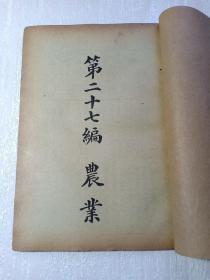 第二十七編 農業